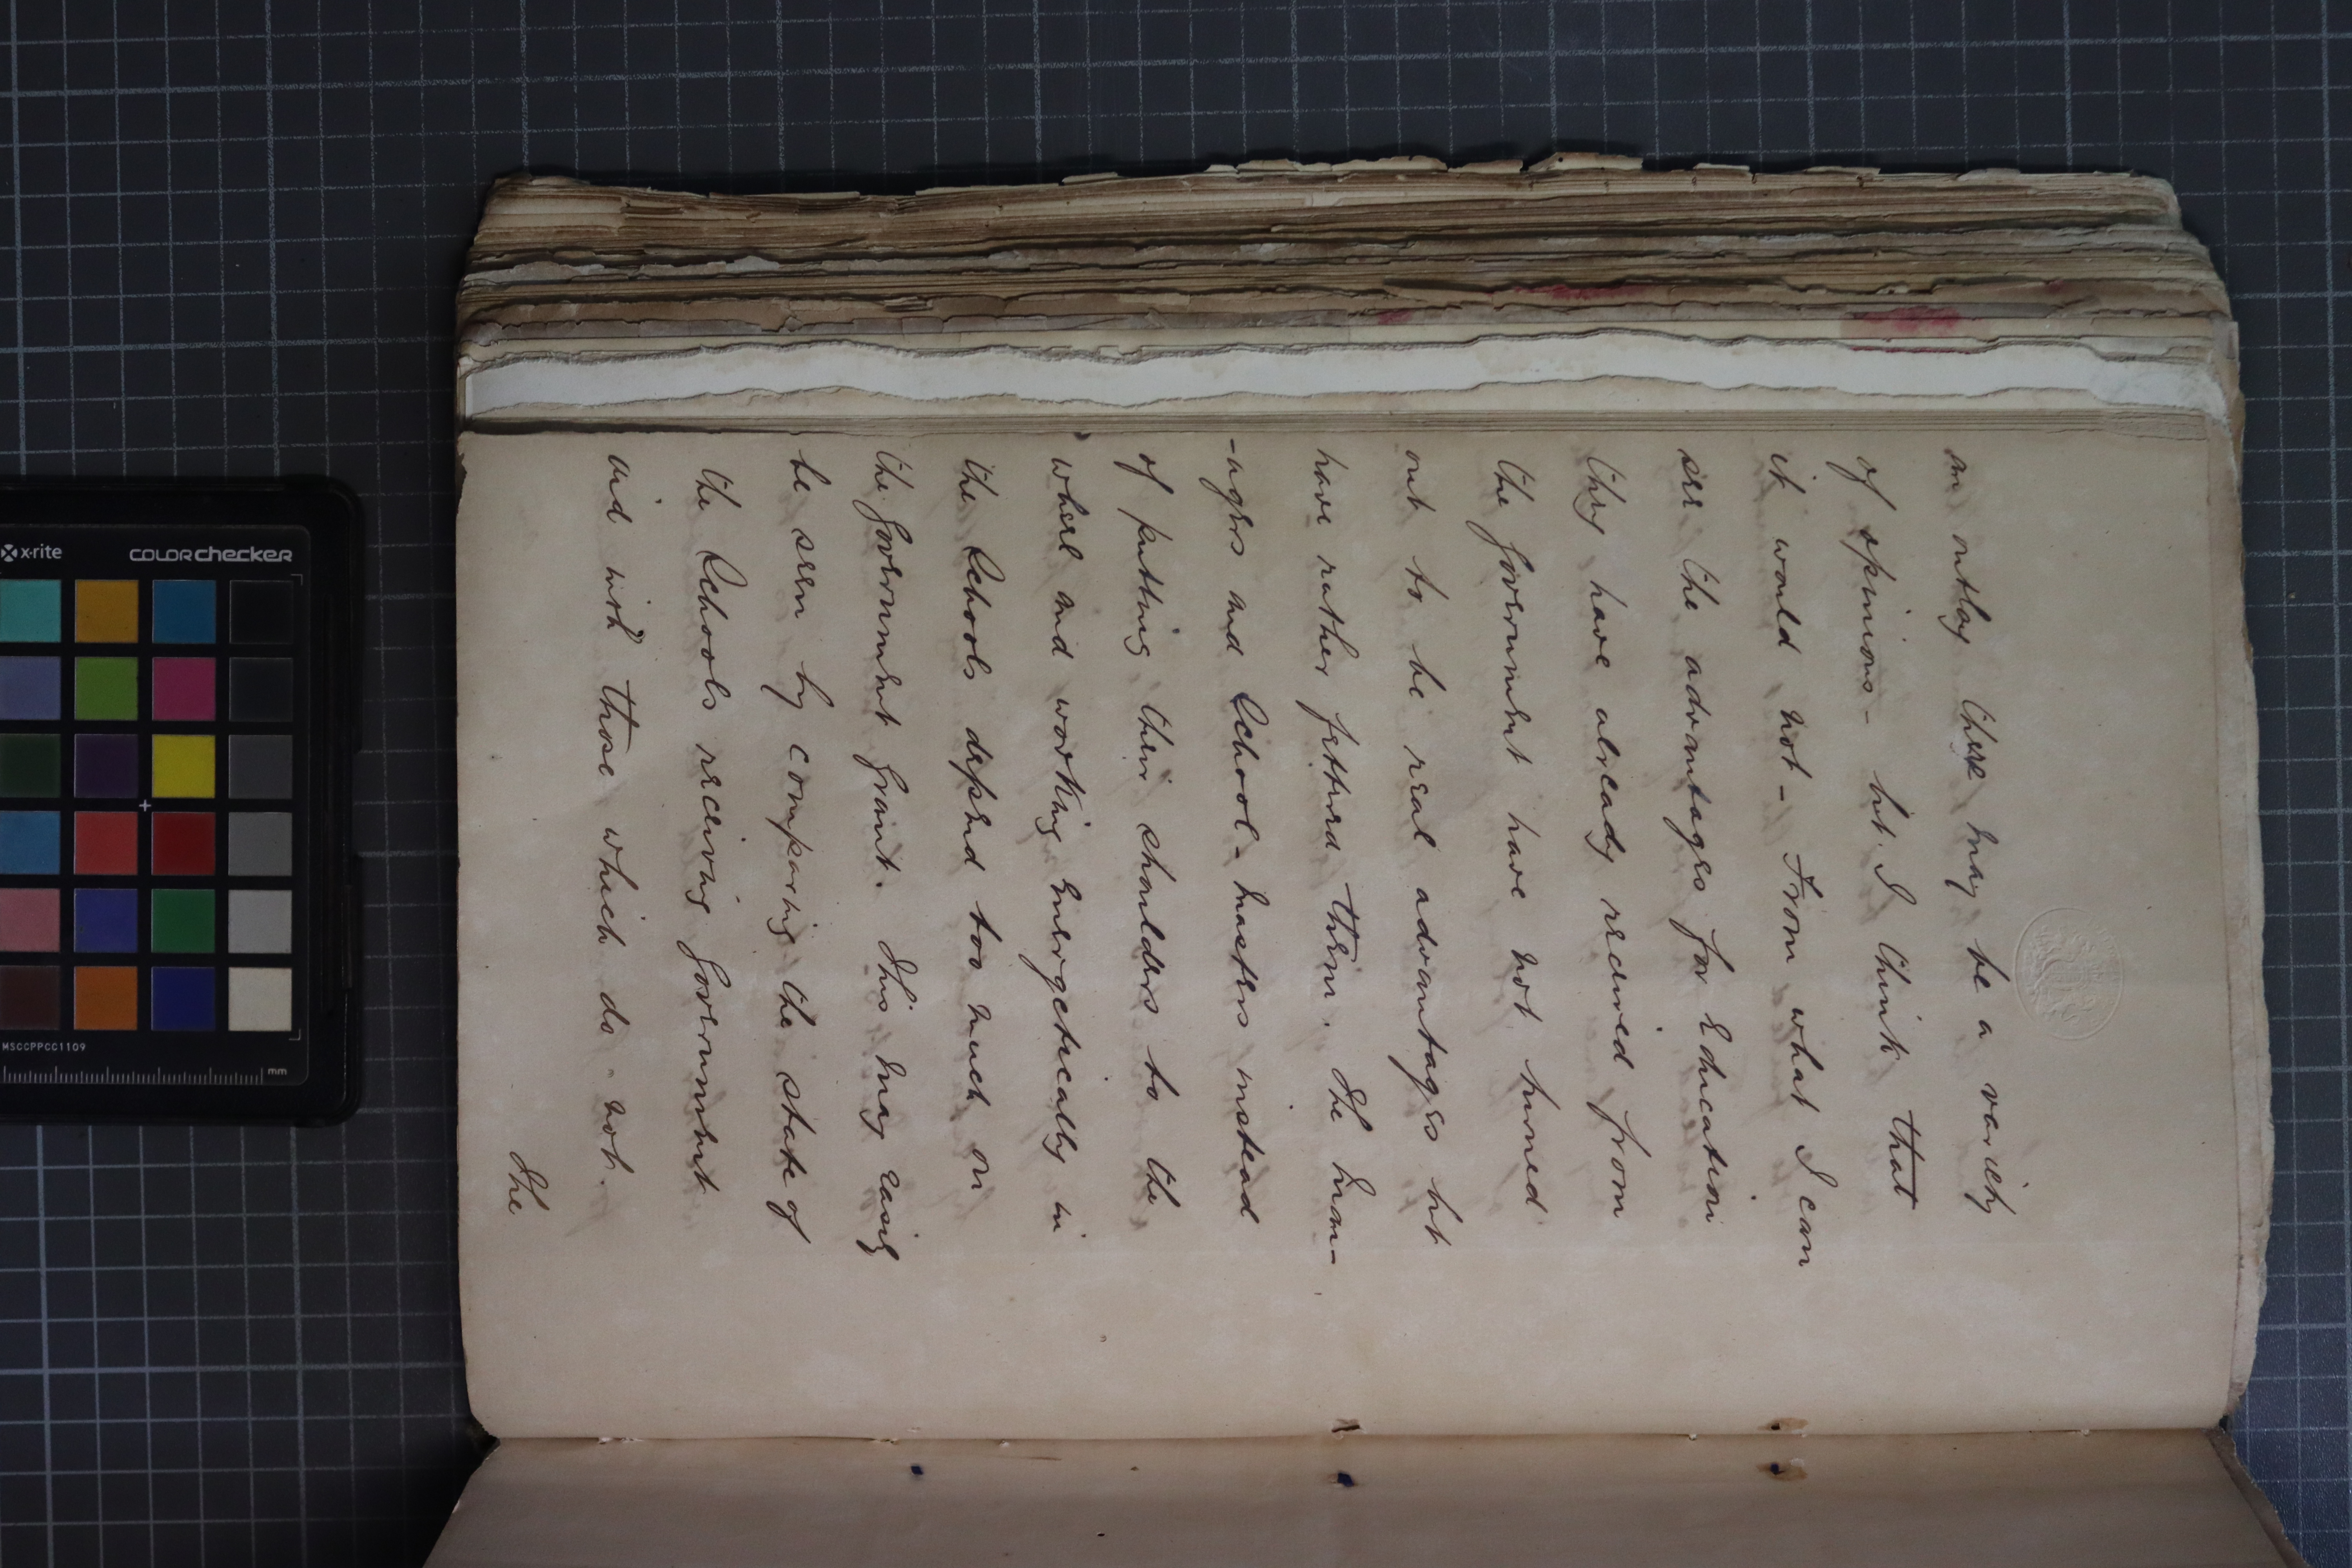 an outlay there may be a variety
of opinions - but I think that
it would not - From what I can
see the advantages for Education
they have already received from
the Government have not turned
out to be real advantages but
have rather fettered them. The man-
-agers and School-masters instead
of putting their shoulders to the
wheel and working energetically in
the Schools depend too much on
the Government Grant. This may easily
be seen by comparing the state of
the Schools receiving Government
aid with those which do not.
The
x-rite
COLORchecker
MSCCPPCC1109
mm